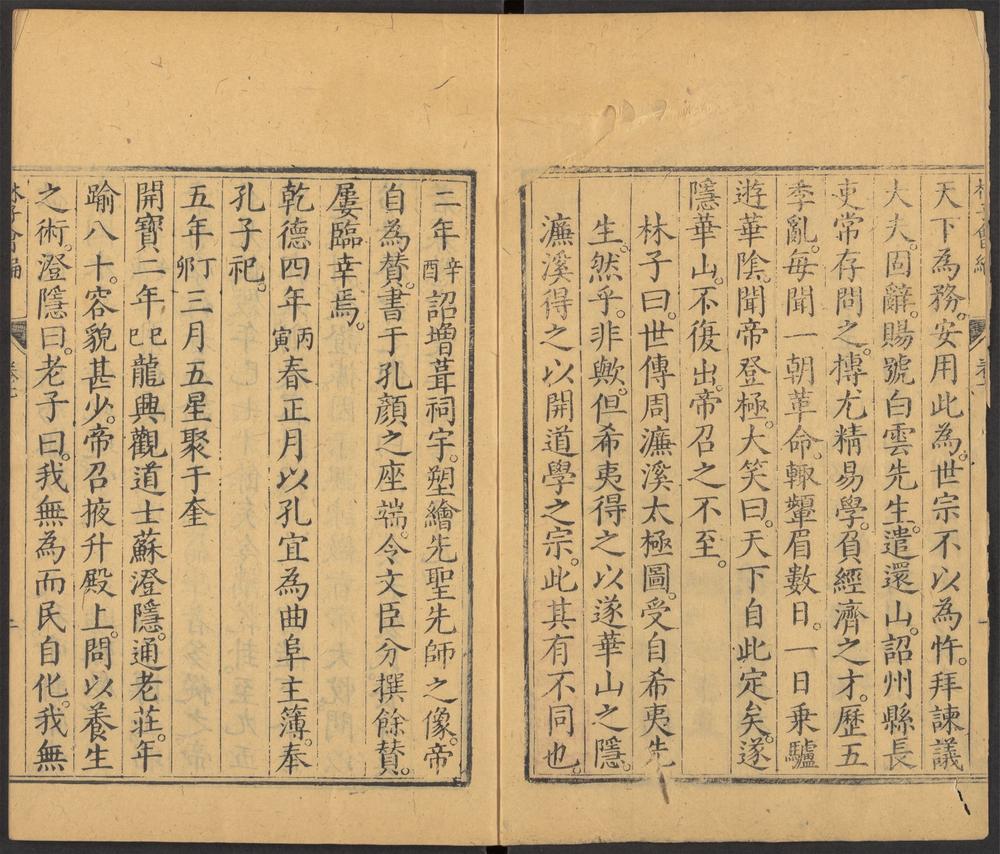 天下為務。安用此為。世宗不以為忤。拜諫議
大夫。固辭。賜號白雲先生。遣還山。詔州縣長
吏常存問之。摶尤精易學。負經濟之才。歷五
季亂。每聞一朝革命。輙顰眉數日。一日乗驢
遊華陰。聞帝登極。大笑曰。天下自此定矣。遂
隱華山。不復出。帝召之不至。
林子曰。世傳周濂溪太極圖。受自希夷先
生。然乎。非歟。但希夷得之以遂華山之隱。
濂溪得之以開道學之宗。此其有不同也。
二年辛酉詔増葺祠宇。塑繪先聖先師之像。帝
自為贊。書于孔顏之座端。令文臣分撰餘贊。
屢臨幸焉。
乾德四年丙寅春正月以孔宜為曲阜主簿。奉
孔子祀。
五年丁卯三月五星聚于奎
開寶二年己巳龍興觀道士蘇澄隱。通老莊。年
踰八十。容貌甚少。帝召掖升殿上。問以養生
之術。澄隱曰。老子曰。我無為而民自化。我無
林子會編